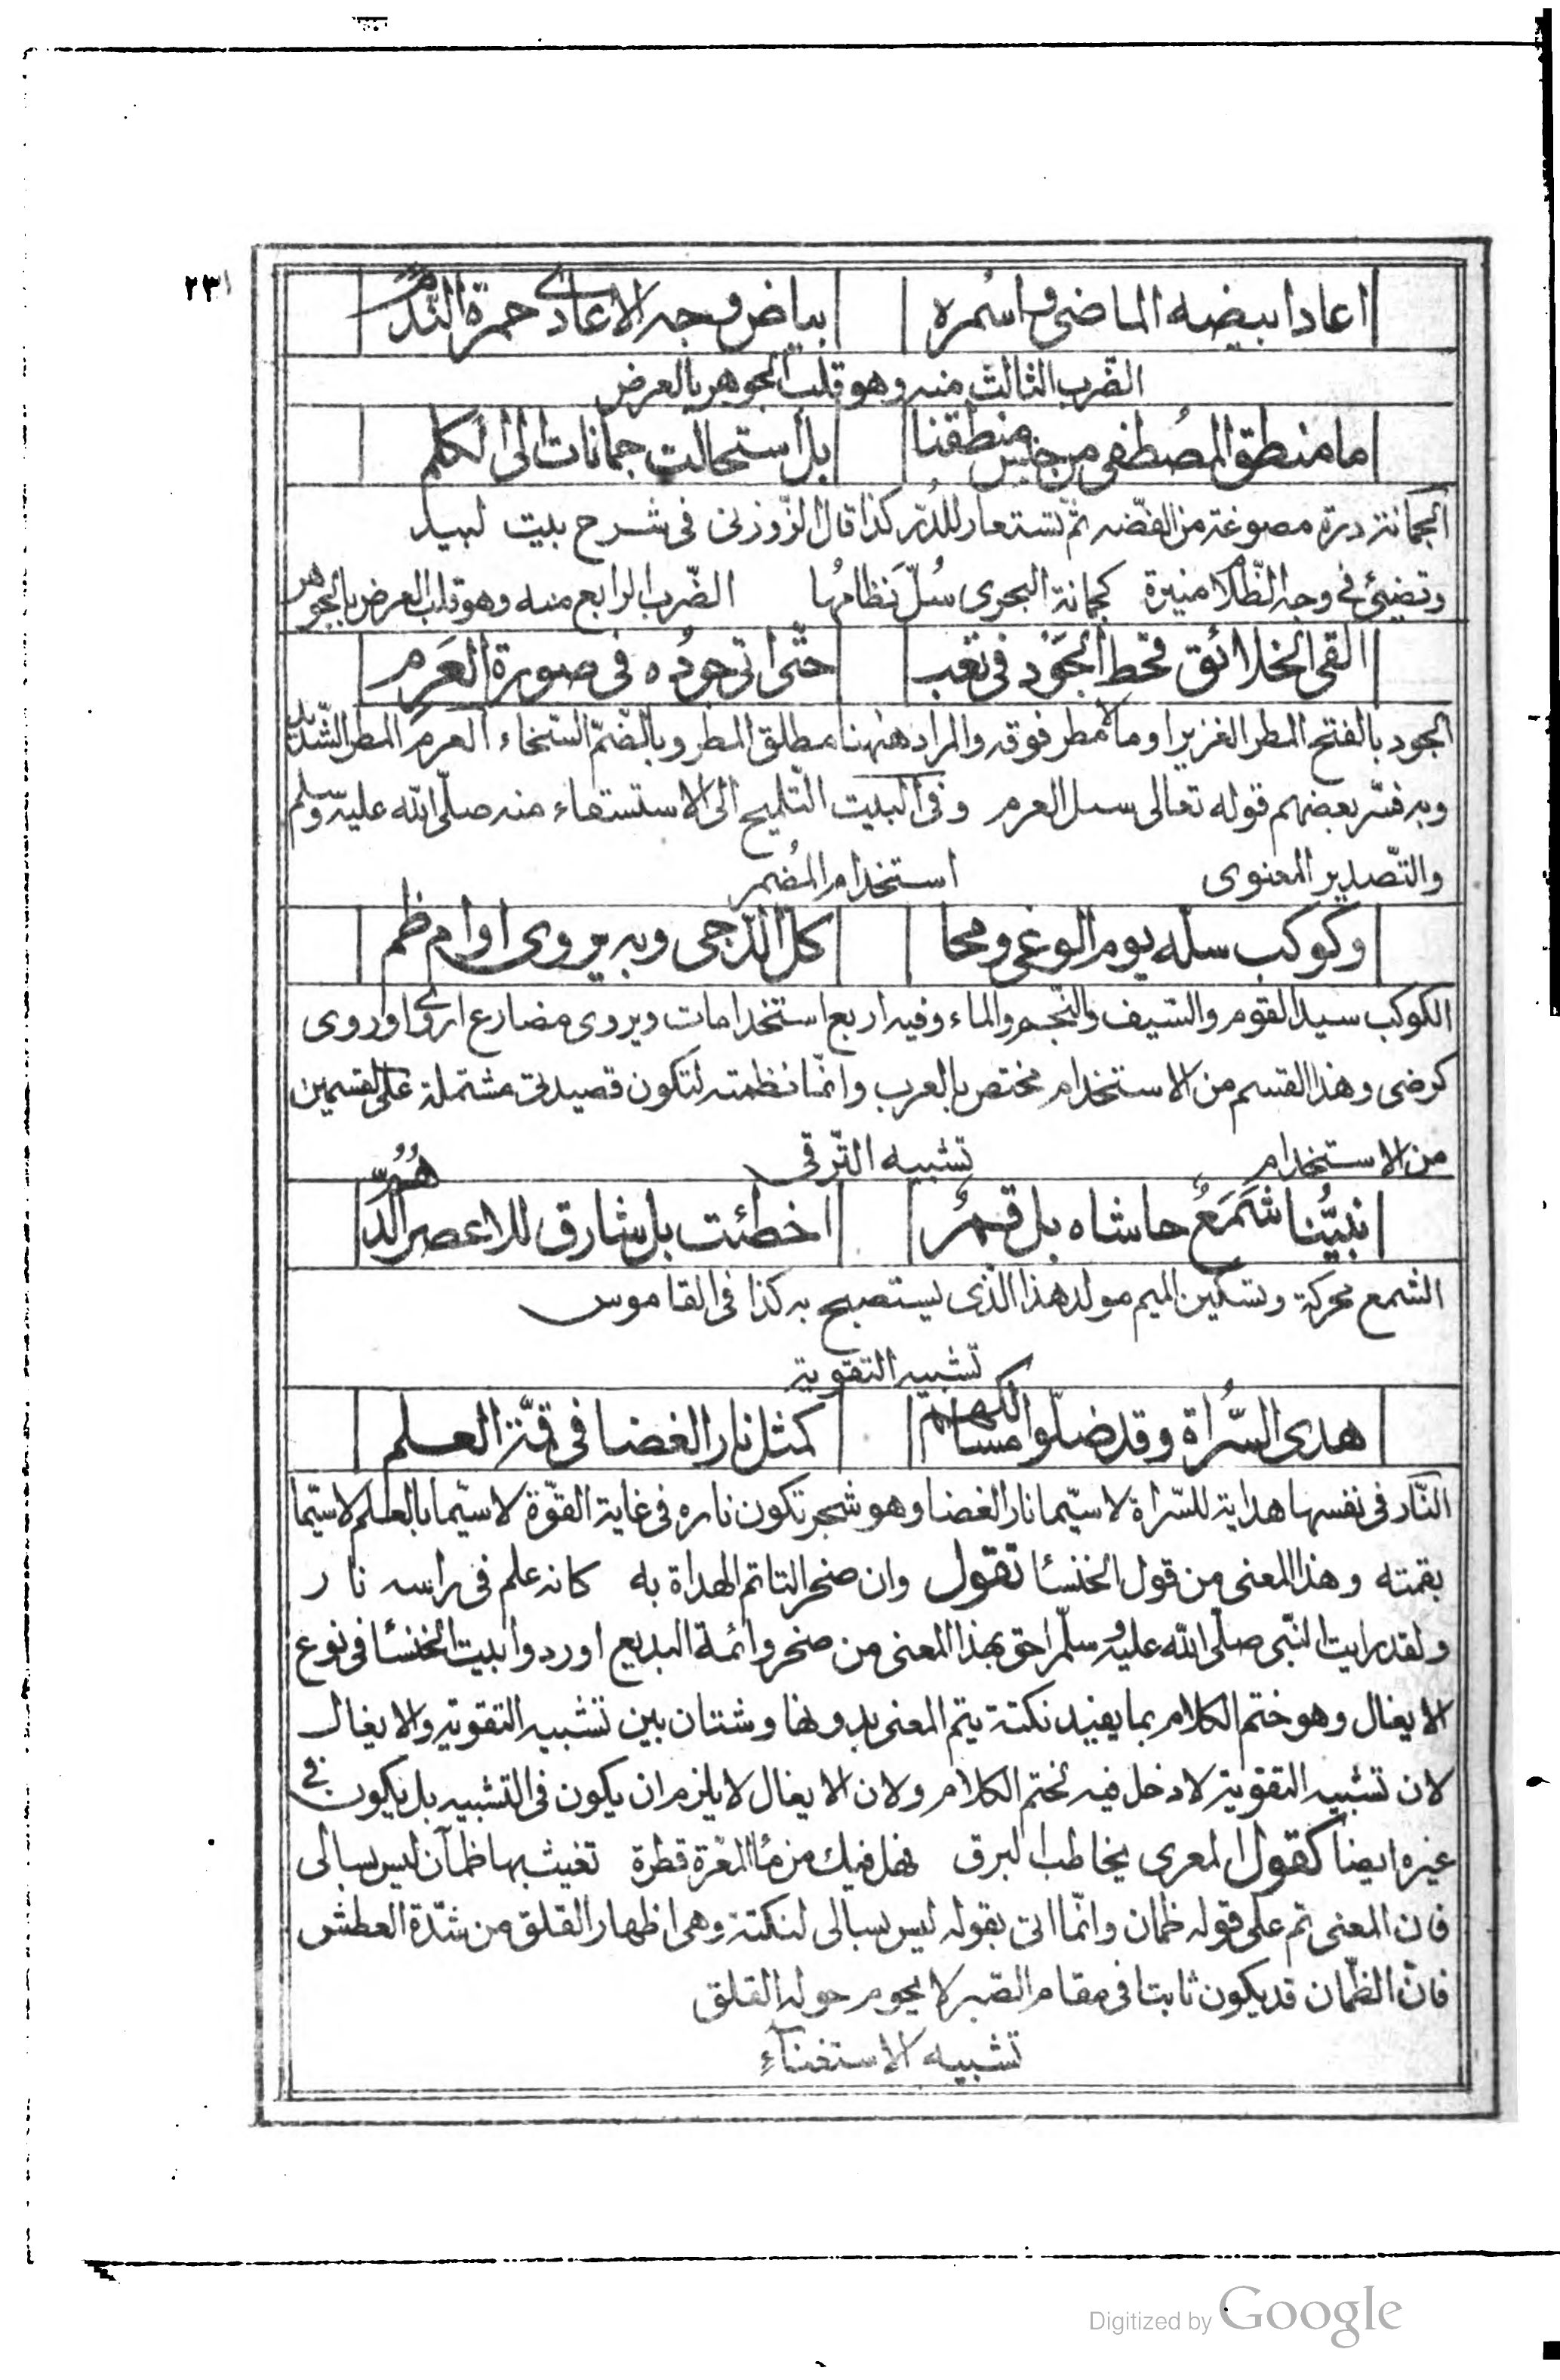 ٢٣١
اعاد ابيضه الماضى واسمره بياض وجه الاعادى حمرة الندم
الضرب الثالث منه وهو قلب الجوهر بالعرض
ما منطق المُصطفى من جنس منطقنا بل استحالت جمانات الى الكلم
الجمانة درة مصوغة من الفضه ثمّ تستعار للدرّ كذا قال الزّوزنى فى شرح بيت لبيد
وتضيئ فى وجه الظّلام منيرة كجمانة البحرى سُلّ نظامُها الضّرب الرابع منه وهو قلب العرض بالجوهر
القى الخلائق قحط الجَوْد فى تعب حتّى اتى جوُده فى صورة العَرِم
الجود بالفتح المطر الغزير او مالا مطر فوقه والمراد ههنا مطلق المطر وبالضّمّ السّخاء العرم المطر الشّديد
وبه فسّر بعضهم قوله تعالى سيل العرم وفى البيت التّلميح الى الاستسقاء منه صلّى الله عليه وسلم
والتّصدير المعنوى استخدام المُضمر
وكوكب سله يوم الوغى ومحا كل الدّجى وبه يروى اوام ظم
الكوكب سيد القوم والسّيف والنّجم والماء وفيه اربع استخدامات ويروى مضارع اروى او روى
كرضى وهذا القسم من الاستخدام مختص بالعرب وانّما نظمته لتكون قصيدتى مشتملة على القسمين
من الاستخدام تشبيه التّرقى
نبيُّنا شَمَعٌ حاشاه بل قمرٌ اخطئت بل شارق للاعصر الدُّهُم
الشمع محركة وتسكين الميم مولد هذا الّذى يستصبح به كذا فى القاموس
تشبيه التقوية
هدى السُّراة وقد ضلّوا مسالكهم كمثل نار الغضا فى قنّة العلم
النّار فى نفسها هداية للسّراة لا سيّما نار الغضا وهو شجر تكون ناره فى غاية القوّة لا سيّما بالعلم لا سيّما
بقمته وهذا المعنى من قول الخنسا تقول وان صخرا لتاتم الهداة به كانه علم فى راسه نار
ولقد رايت النّبى صلّى الله عليه وسلّم احق بهذا المعنى من صخر وائمة البديع اوردوا بيت الخنسا فى نوع
الايغال وهو ختم الكلام بما يفيد نكتة يتم المعنى بدونها وشتان بين تشبيه التقوية والايغال
لان تشبيه التقوية لا دخل فيه لختم الكلام ولان الايغال لا يلزم ان يكون فى التشبيه بل يكون فى
غيره ايضا كقول المعرى يخاطب البرق فهل فيك من ماء المعرة قطرة تغيث بها ظمآن ليس بسالى
فان المعنى تم على قوله ظمان وانّما اتى بقوله ليس بسالى لنكتة وهى اظهار القلق من شدّة العطش
فانّ الظّمان قد يكون ثابتا فى مقام الصّبر لا يحوم حوله القلق
تشبيه الاستغناء
Digitized by Google